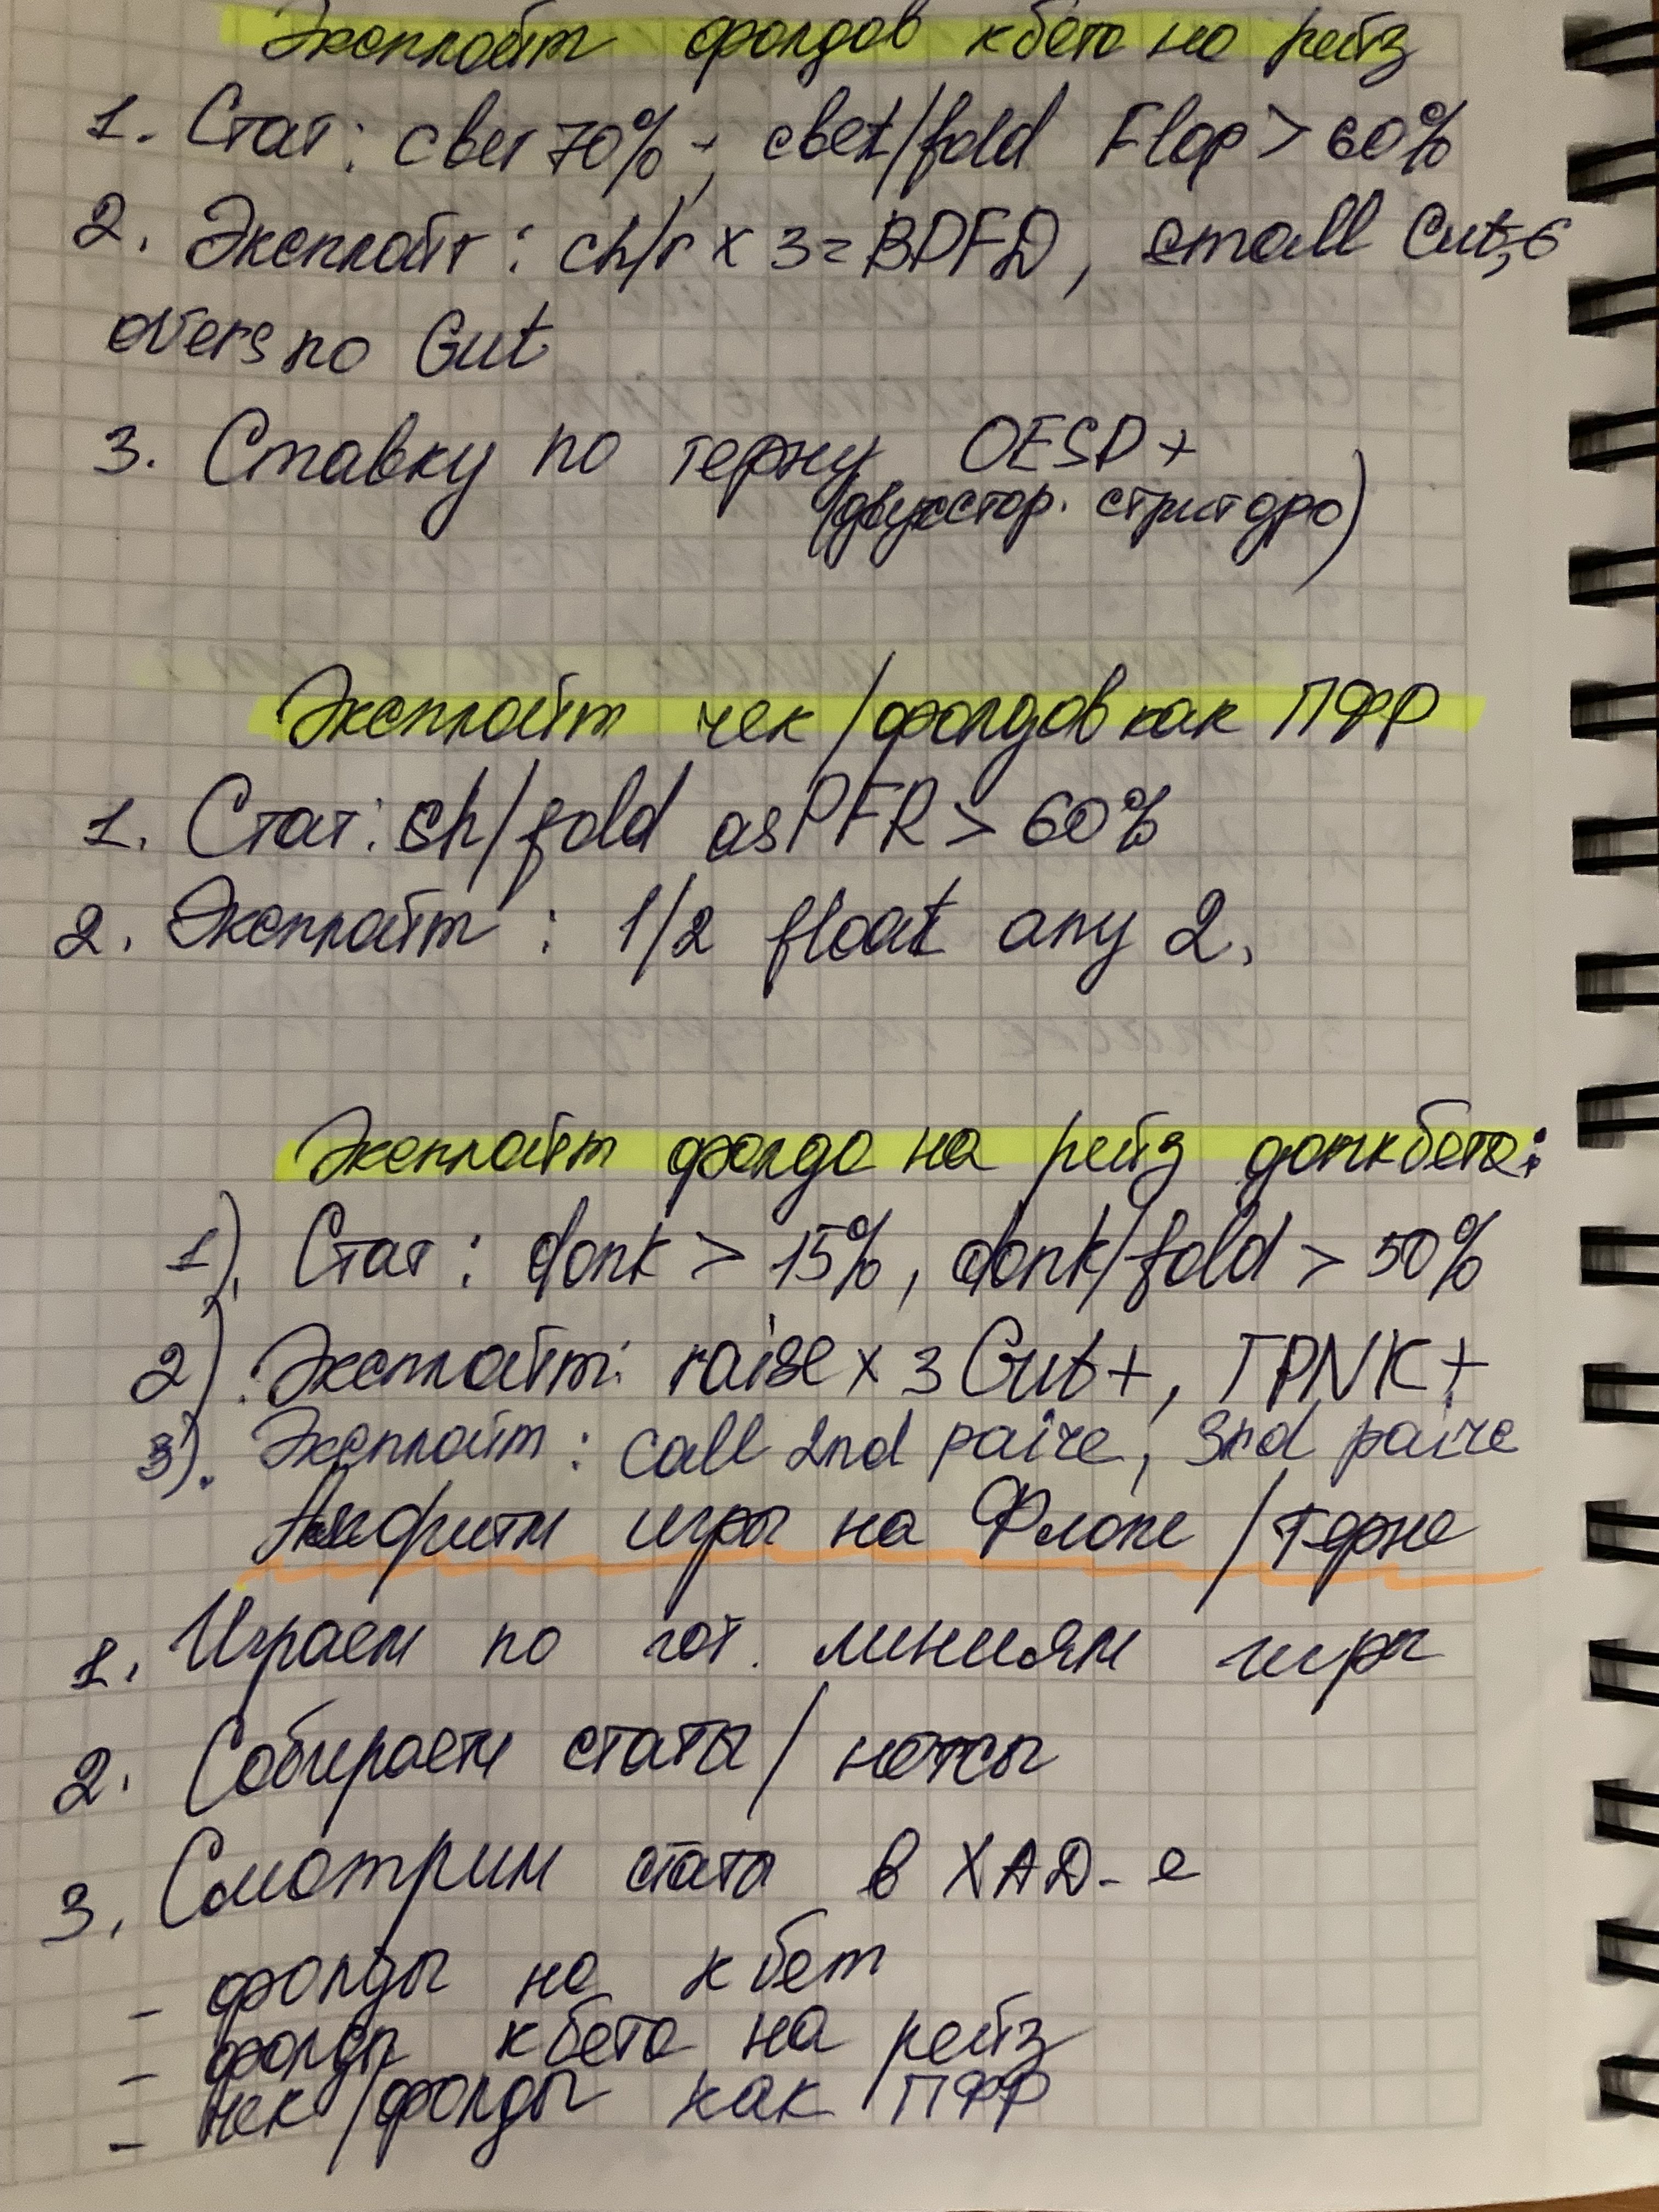 Эксплойт фолдов кбета на рейз
1. Стат: cbet 70%+, cbet/fold Flop > 60%
2. Эксплойт: ch/r x 3 = BDFD, small Gut, 6
overs no Gut
3. Ставку по терну OESD+
(двухстор. стритдро)
Эксплойт чек/фолдов как ПФР
1. Стат: ch/fold as PFR > 60%
2. Эксплойт: 1/2 float any 2.
Эксплойт фолда на рейз донкбета:
1). Стат: donk > 15%, donk/fold > 50%
2). Эксплойт: raise x 3 Gut+, TPNK+
3). Эксплойт: call 2nd paire, 3nd paire
игры на Флопе/Терне
1. Играем по гот. линиям игры
2. Собираем статы/нотсы
3. Смотрим статы в ХАД-е
- фолды на кбет
- фолды кбета на рейз
- чек/фолды как ПФР